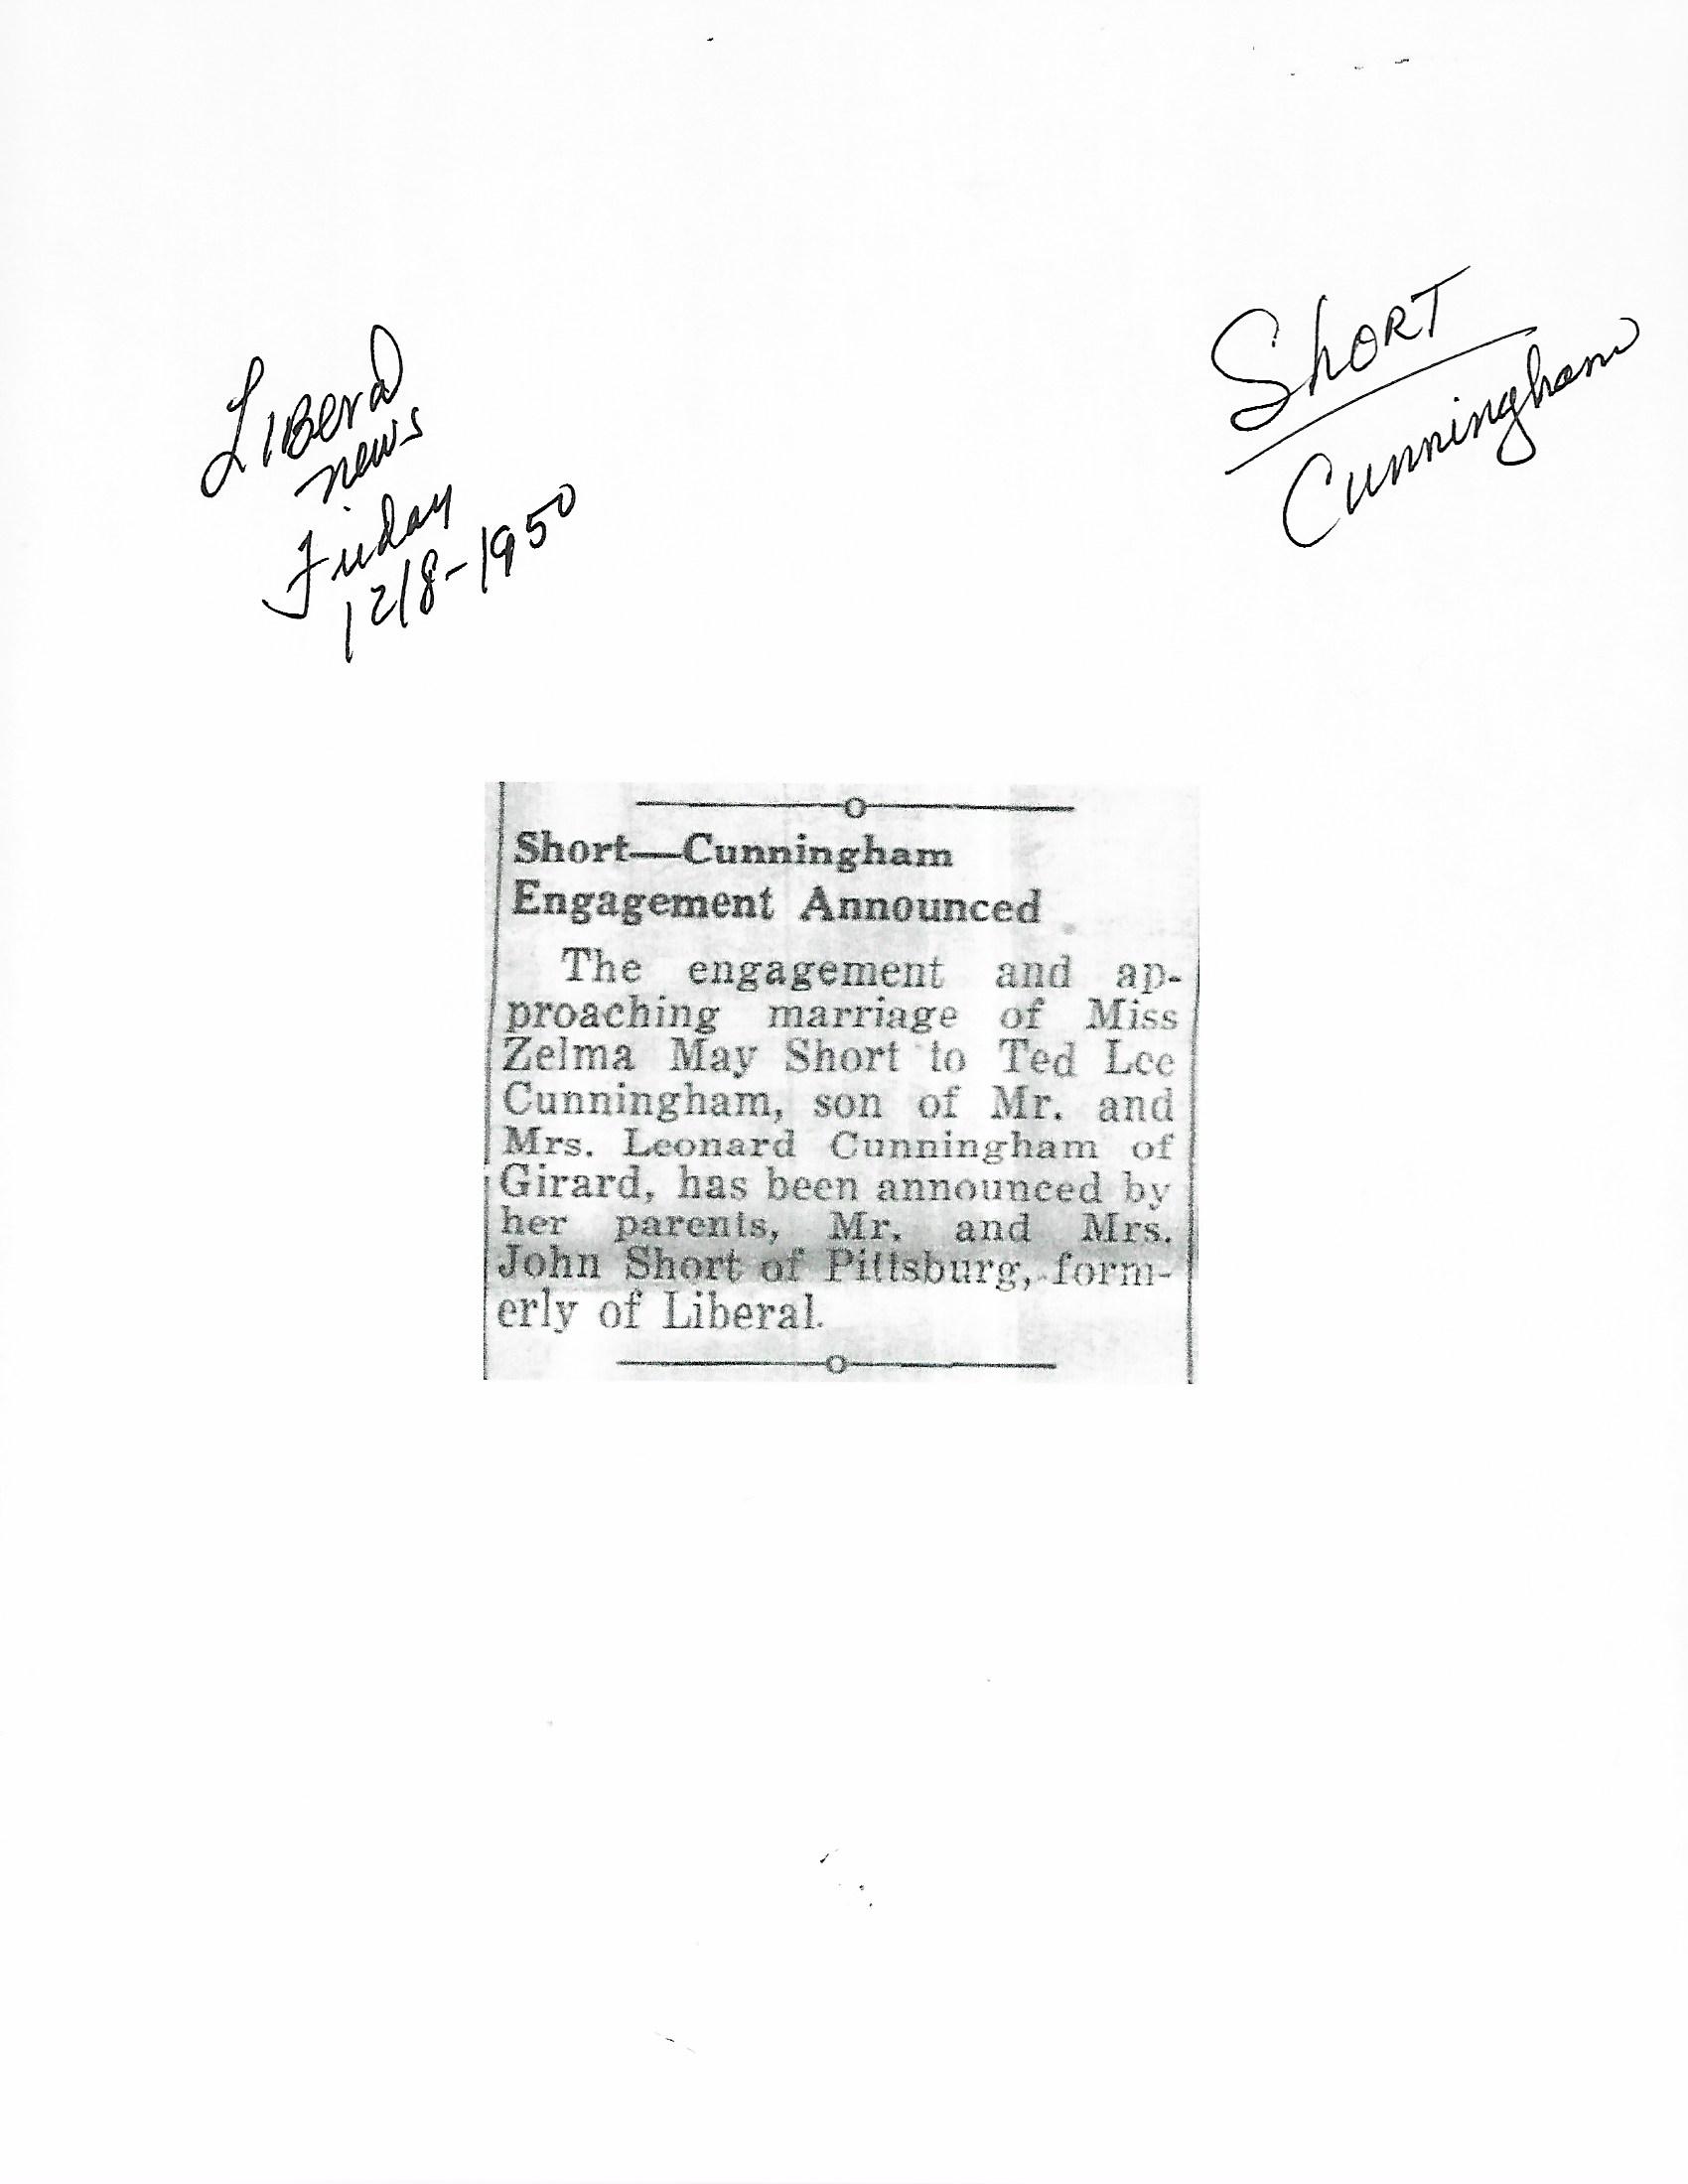 Liberal
news
Friday
12/8-1950
Short
Cunningham
Short—Cunningham
Engagement Announced
The engagement and ap-
proaching marriage of Miss
Zelma May Short to Ted Lee
Cunningham, son of Mr. and
Mrs. Leonard Cunningham of
Girard, has been announced by
her parents, Mr. and Mrs.
John Short of Pittsburg, form-
erly of Liberal.